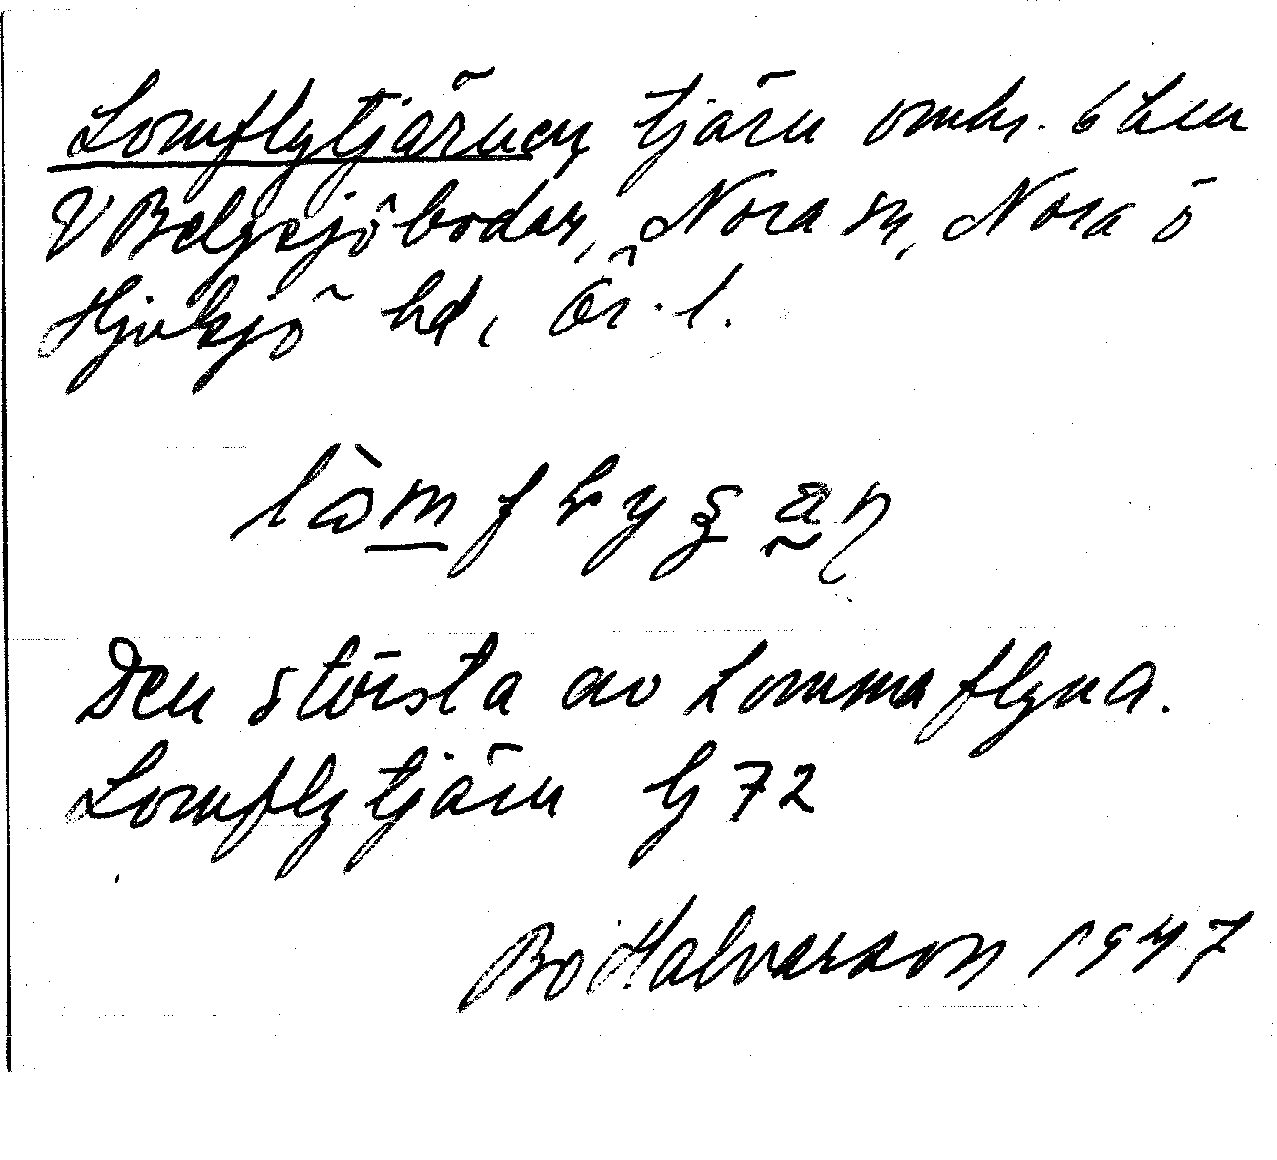 Lomflytjärnen, tjärn omkr. 6 km
V Bälgsjöbodar, Nora sn, Nora o
Hjulsjö hd, Ör. l.
Den största av Lommaflyna.
Lomflytjärn G 72
Bo Halvarson 1947